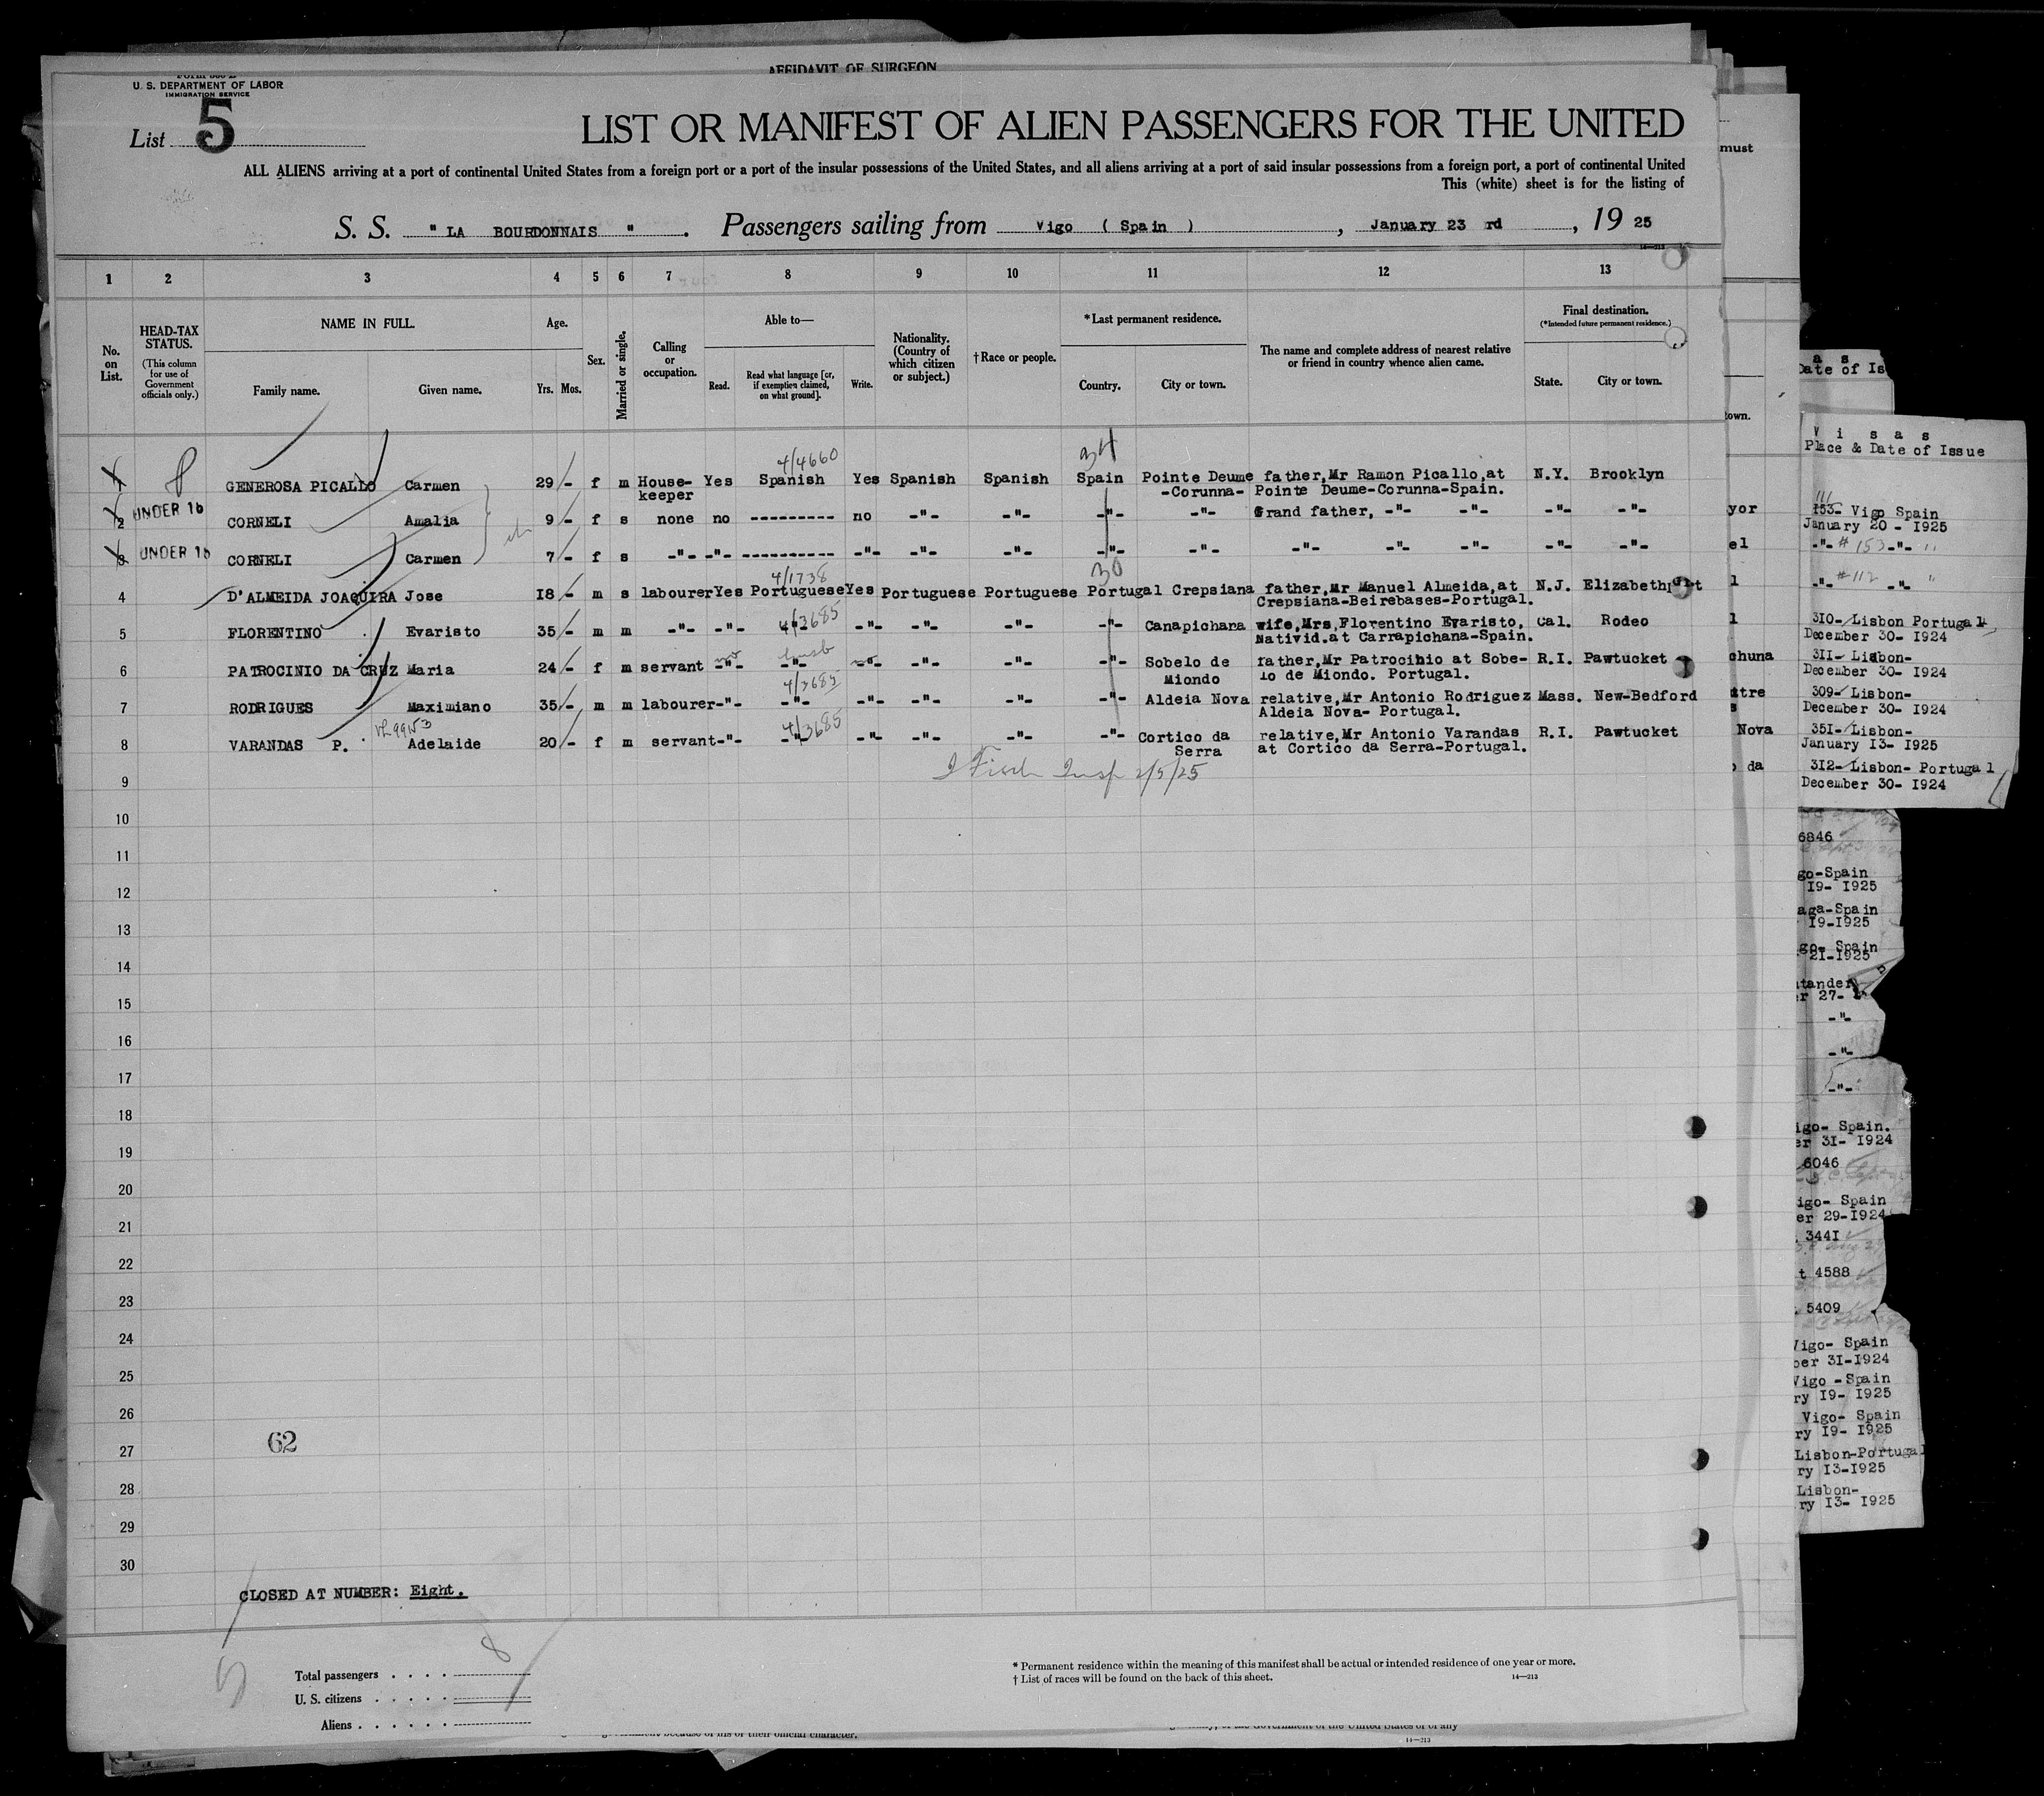 AFFIDAVIT OF SURGEON
U. S. DEPARTMENT OF LABOR
IMMIGRATION SERVICE
List 5
LIST OR MANIFEST OF ALIEN PASSENGERS FOR THE UNITED
ALL ALIENS arriving at a port of continental United States from a foreign port or a port of the insular possessions of the United States, and all aliens arriving at a port of said insular possessions from a foreign port, a port of continental United
This (white) sheet is for the listing of
S. S. " LA BOURDONNAIS " . Passengers sailing from Vigo ( Spain ) , January 23 rd , 19 25
14—213
1 2 3 4 5 6 7 8 9 10 11 12 13
No. on List.
HEAD-TAX STATUS.
(This column for use of Government officials only.)
NAME IN FULL.
Family name. Given name.
Age.
Yrs. Mos.
Sex.
Married or single.
Calling or occupation.
Able to—
Read. Read what language [or, if exemption claimed, on what ground]. Write.
Nationality. (Country of which citizen or subject.)
† Race or people.
* Last permanent residence.
Country. City or town.
The name and complete address of nearest relative or friend in country whence alien came.
Final destination.
(*Intended future permanent residence.)
State. City or town.
4/4660 34
1 GENEROSA PICALLO Carmen 29 - f m House- Yes Spanish Yes Spanish Spanish Spain Pointe Deume father,Mr Ramon Picallo,at N.Y. Brooklyn
keeper -Corunna- Pointe Deume-Corunna-Spain.
2 UNDER 16 CORNELI Amalia 9 - f s none no --------- no -"- -"- -"- -"- Grand father, -"- -"- -"- -"-
3 UNDER 16 CORNELI Carmen 7 - f s -"- -"- ---------- -"- -"- -"- -"- -"- -"- -"- -"- -"- -"-
4/1738 30
4 D'ALMEIDA JOAQUIRA Jose 18 - m s labourer Yes Portuguese Yes Portuguese Portuguese Portugal Crepsiana father,Mr Manuel Almeida,at N.J. Elizabethport
Crepsiana-Beirebases-Portugal.
4/3685
5 FLORENTINO Evaristo 35 - m m -"- -"- -"- -"- -"- -"- -"- Canapichara wife,Mrs,Florentino Evaristo, Cal. Rodeo
Nativid.at Carrapichana-Spain.
6 PATROCINIO DA CRUZ Maria 24 - f m servant -"- no -"- -"- no -"- -"- -"- Sobelo de father,Mr Patrocinio at Sobe- R.I. Pawtucket
Miondo lo de Miondo. Portugal.
4/3685
7 RODRIGUES Maximiano 35 - m m labourer -"- -"- -"- -"- -"- -"- Aldeia Nova relative,Mr Antonio Rodriguez Mass. New-Bedford
Aldeia Nova- Portugal.
4/3685
8 VARANDAS P. Adelaide 20 - f m servant -"- -"- -"- -"- -"- -"- Cortico da relative,Mr Antonio Varandas R.I. Pawtucket
Serra at Cortico da Serra-Portugal.
Insp 2/5/25
9
10
11
12
13
14
15
16
17
18
19
20
21
22
23
24
25
26
62
27
28
29
30
CLOSED AT NUMBER: Eight.
Total passengers . . . . 8
U. S. citizens . . . . .
Aliens . . . . . .
* Permanent residence within the meaning of this manifest shall be actual or intended residence of one year or more.
† List of races will be found on the back of this sheet.
14—213
14—213
must
town.
yor
el
l
l
chuna
Nova
da
a s
Date of Is
V i s a s
Place & Date of Issue
111
153- Vigo Spain
January 20 - 1925
-"- # 153 -"- "
-"- # 112 -"- "
310- Lisbon Portugal
December 30- 1924
311- Lisbon-
December 30- 1924
309- Lisbon-
December 30- 1924
351- Lisbon-
January 13- 1925
312- Lisbon- Portugal
December 30- 1924
6846
go-Spain
19- 1925
aga-Spain
19-1925
go- Spain
21-1925
tander
er 27-
-"-
-"-
-"-
igo- Spain.
er 31- 1924
6046
igo- Spain
er 29-1924
3441
t 4588
5409
Vigo- Spain
ber 31-1924
Vigo -Spain
ry 19- 1925
Vigo- Spain
ry 19- 1925
Lisbon-Portugal
ry 13-1925
Lisbon-
ry 13- 1925